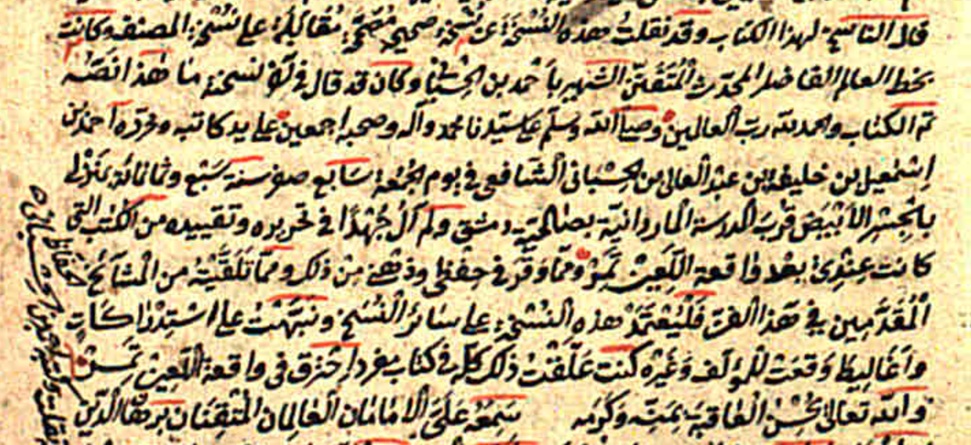 قال الناسخ لهذا الكتاب وقد نقلت هذه النسخة عن نسخة صحيحة مقابلة على نسخة المصنف وكانت
بخط العالم الفاضل المحدث المتقن الشهير باحمد بن الحسباني وكان قد قال في آخر نسخته ما هذا نصه
تم الكتاب والحمد لله رب العالمين وصلى الله وسلم على سيدنا محمد وآله وصحبه اجمعين على يد كاتبه ومحرره احمد بن
اسمعيل بن خليفة بن عبد العالي بن الحسباني الشافعي في يوم الجمعة سابع صفر سنة سبع وثمانمائة بمنزلي
بالجسر الأبيض قرب المدرسة الماردانية بصالحية دمشق ولم آل جهدا في تحريره وتقييده من الكتب التي
كانت عندي بعد واقعة اللعين تمر ومما وقر في حفظي وذهني من ذلك ومما تلقيت من المشائخ
المقدمين في هذا الفن فليعتمد هذه النسخة على سائر النسخ ونبهت على استدراكات
وأغاليط وقعت للمؤلف وغيره كنت علقت ذلك كله في كتاب مفرد احترق في واقعة اللعين تمر
والله تعالى يحسن العاقبة بمنه وكرمه سمعه على الامامان العالمان المتقنان برهان الدين